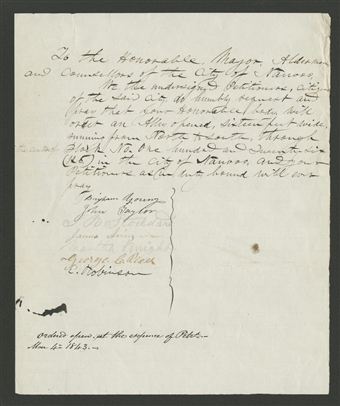 To the Honorable, Mayor, Aldermen
and Councellors of the City of Nauvoo,
We the undersigned Petitioners, citizens
of the said City, do humbly request and
pray that your Honorable body will
order an Alley opened, sixteen feet wide,
running from North to South, through
Block No. One hundred and
(126) in the City of Nauvoo, and your
Petitioners as in duty bound will ever
pray
Brigham Young
John Taylor
George C. 
C. Robinson
ordered open, at the expence of Petrs.—
Mar 4th 1843.—